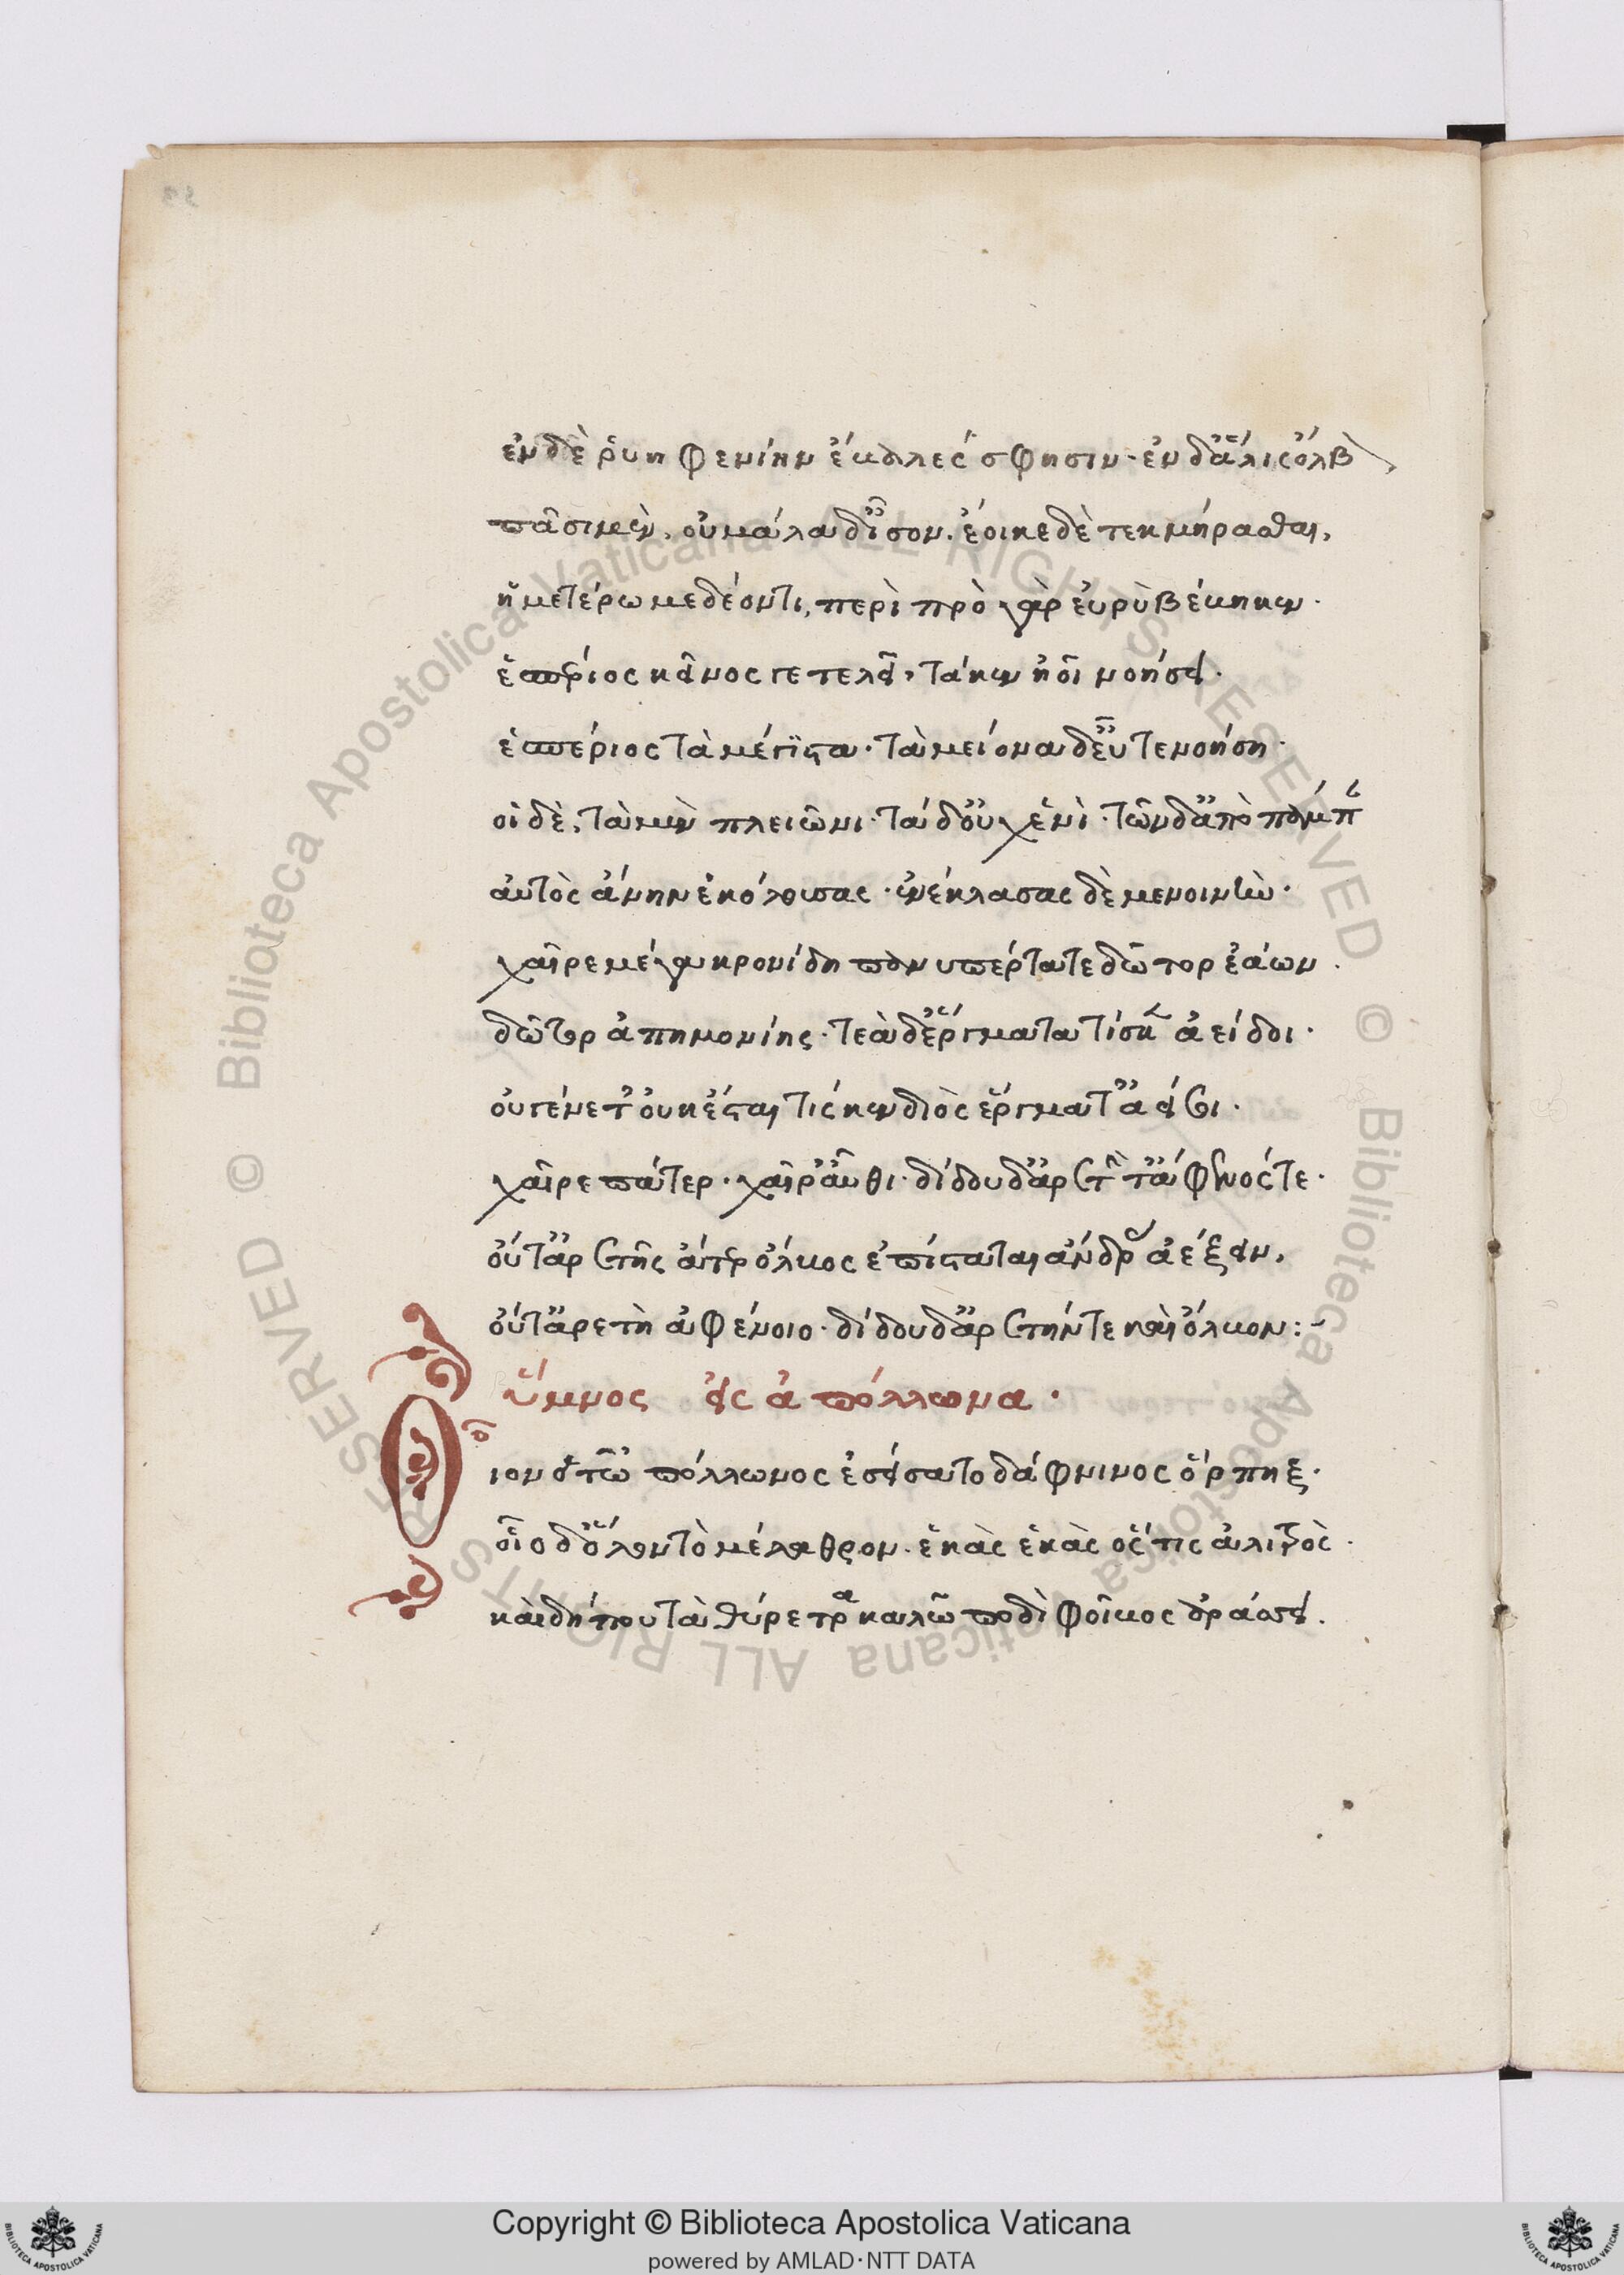 ἐν δὲ ῥυηφενίην ἔβαλές σφησιν· ἐν δ' ἅλις ὄλβ
πᾶσι μὲν, οὐ μάλα δ' ἶσον. ἔοικε δὲ τεκμήρασθαι,
ἡμετέρω μεδέοντι, περὶ πρὸ γὰρ εὐρὺ βέβηκεν·
ἑσπέριος κεῖνος γε τελεῖ, τά κεν ἠοῖ νοήσει·
ἑσπέριος τὰ μέγιστα· τὰ μείονα δ' εὖτε νοήση·
οἱ δὲ, τὰ μὲν πλειῶνι· τά δ' οὐχ ἑνὶ· τῶν δ' ἀπὸ πάμπ
αὐτὸς ἄνην ἐκόλουσας· ἐνέκλασας δὲ μενοινὴν·
χαῖρε μέγα κρονίδη πανυπέρτατε δῶτορ ἐάων.
δῶτορ ἀπημονίης· τεὰ δ' ἔργματα τίς κεν ἀείδοι·
οὐ γένετ' οὐκ ἔσται τίς κεν διὸς ἔργματ' ἀείσει·
χαῖρε πάτερ· χαῖρ' αὖθι· δίδου δ' ἀρετήν τ' ἄφενός τε·
οὔτ' ἀρετῆς ἄτερ ὄλβος ἐπίσταται ἄνδρας ἀέξειν,
οὔτ' ἀρετὴ ἀφένοιο· δίδου δ' ἀρετήν τε καὶ ὄλβον:-
ὕμνος εἰς ἀπόλλωνα·
Οἷον ὁ τὠπόλλωνος ἐσείσατο δάφνινος ὅρπηξ·
οἷο δ' ὅλον τὸ μέλαθρον· ἑκὰς ἑκὰς ὅστις ἀλιτρὸς·
καὶ δή που τὰ θύρετρα καλῶ ποδὶ φοῖβος ἀράσσει.
Copyright © Biblioteca Apostolica Vaticana
powered by AMLAD·NTT DATA
© Biblioteca Apostolica Vaticana ALL RIGHTS RESERVED
© Biblioteca Apostolica Vaticana ALL RIGHTS RESERVED